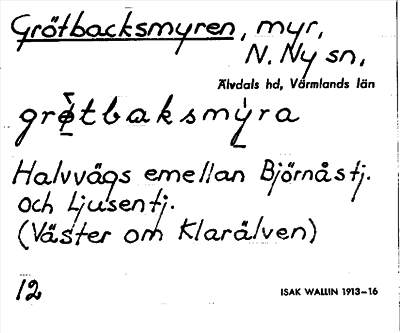 Grötbacksmyren, myr,
N. Ny sn,
Älvdals hd, Värmlands län
grø̌tbaksmy̍ra
Halvvägs emellan Björnåstj.
och Ljusentj.
(Väster om Klarälven)
12
ISAK WALLIN 1913–16